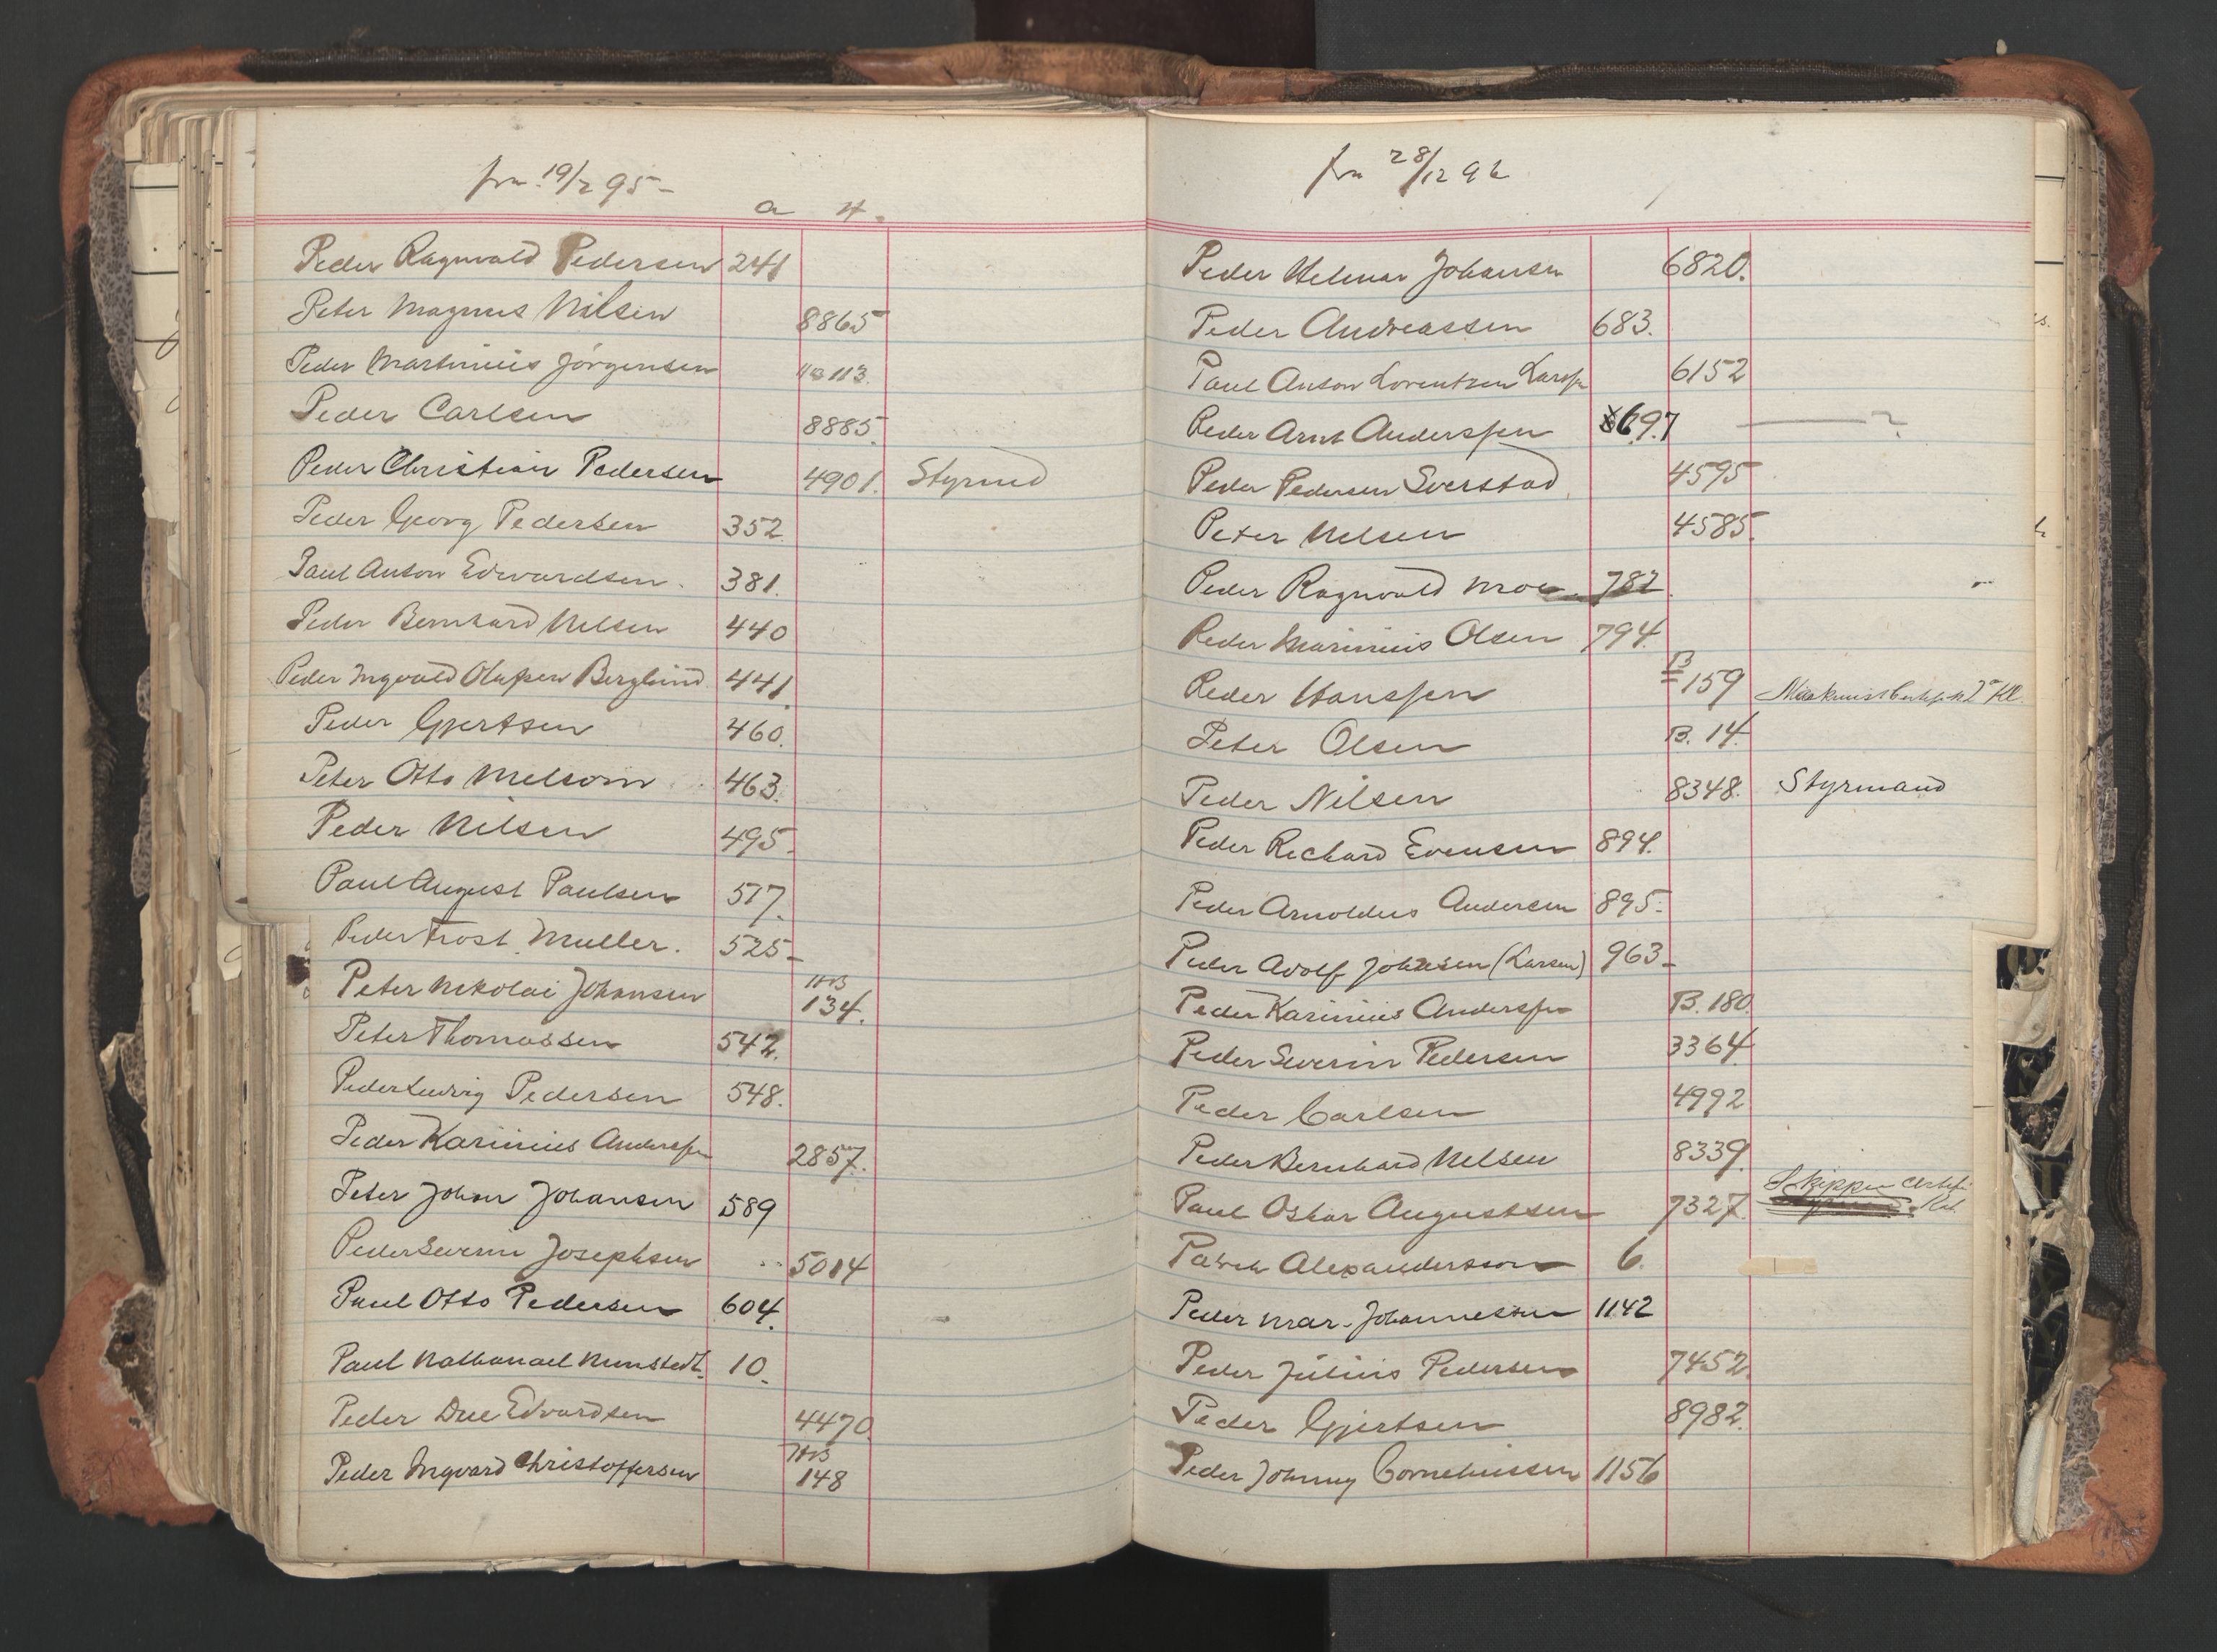 fra 19/2 95-
a H.
Peder Ragnvald Pedersen 241
Peter Magnus Nilsen 8865
Peder Martinius Jörgensen 113.
Peder Carlsen 8885.
Peder Christian Pedersen 4901. Styrmd
Peder Georg Pedersen 352
Paul Anton Edwardsen. 381.
Peder Bernhard Nelsen 440
Peder Ingvald Olafsen Berglund 441.
Peder Gjertsen 460.
Peter Otto Melsom 463.
Peder Nilsen 495.
Paul August Paulsen 517.
Peder Frost Muller. 525-
Peter Nikolai Johansen HB 134.
Peter Thomassen 542.
Peder Ludvig Pedersen 548.
Peder Karinius Anderssen 2857.
Peter Johan Johansen 589
Peder Severin Josephsen 5014
Paul Otto Pedersen 604.
Paul Nathanael Munstedt. 10.
Peder Due Edvardsen 4470
Peder Ingvard Christoffersen HB 148
fra 28/12 96
Peder Helmar Johansen 6820.
Peder Andreassen 683.
Paul Anton Lorentzen Larssen 6152
Peder Arnt Anderssen 697 — ?
Peder Pedersen Sverstad 4595
Peter Nelsen 4585.
Peder Ragnvald Moe. 782
Peder Marinius Olsen 794.
Peder Hanssen B 159
Peter Olsen B. 14.
Peder Nilsen 8348. Styrmand
Peder Richard Evensen 894.
Peder Arnoldus Andersen 895.
Peder Adolf Johnsen (Larsen) 963-
Peder Karinius Anderssen B. 180.
Peder Severin Pedersen 3364
Peder Carlsen 4992
Peder Bernhard Nelsen 8339.
Paul Oskar Augustsen 7327. Skipper
Patrik Alexandersson 6.
Peder Mar. Johannessen 1142
Peder Julius Pedersen 7452.
Peder Gjertsen 8982.
Peder Johnny Corneliussen 1156